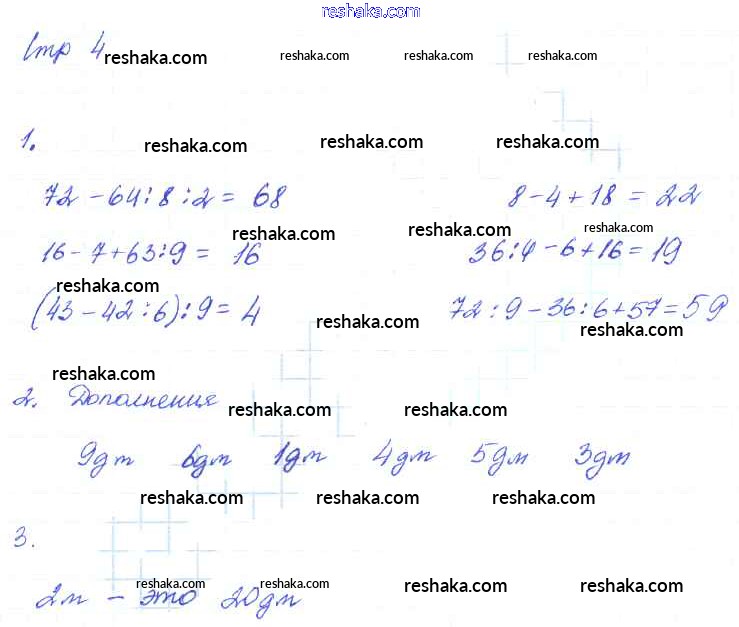 reshaka.com
Стр 4 reshaka.com reshaka.com reshaka.com reshaka.com
1. reshaka.com reshaka.com reshaka.com
72 - 64 : 8 : 2 = 68 8 - 4 + 18 = 22
reshaka.com reshaka.com reshaka.com
16 - 7 + 63 : 9 = 16 36 : 4 - 6 + 16 = 19
reshaka.com
(43 - 42 : 6) : 9 = 4 72 : 9 - 36 : 6 + 57 = 59
reshaka.com reshaka.com
reshaka.com
2. Дополнения reshaka.com reshaka.com
9дм 6дм 1дм 4дм 5дм 3дм
reshaka.com reshaka.com reshaka.com
3.
reshaka.com reshaka.com reshaka.com reshaka.com
2м - это 20дм